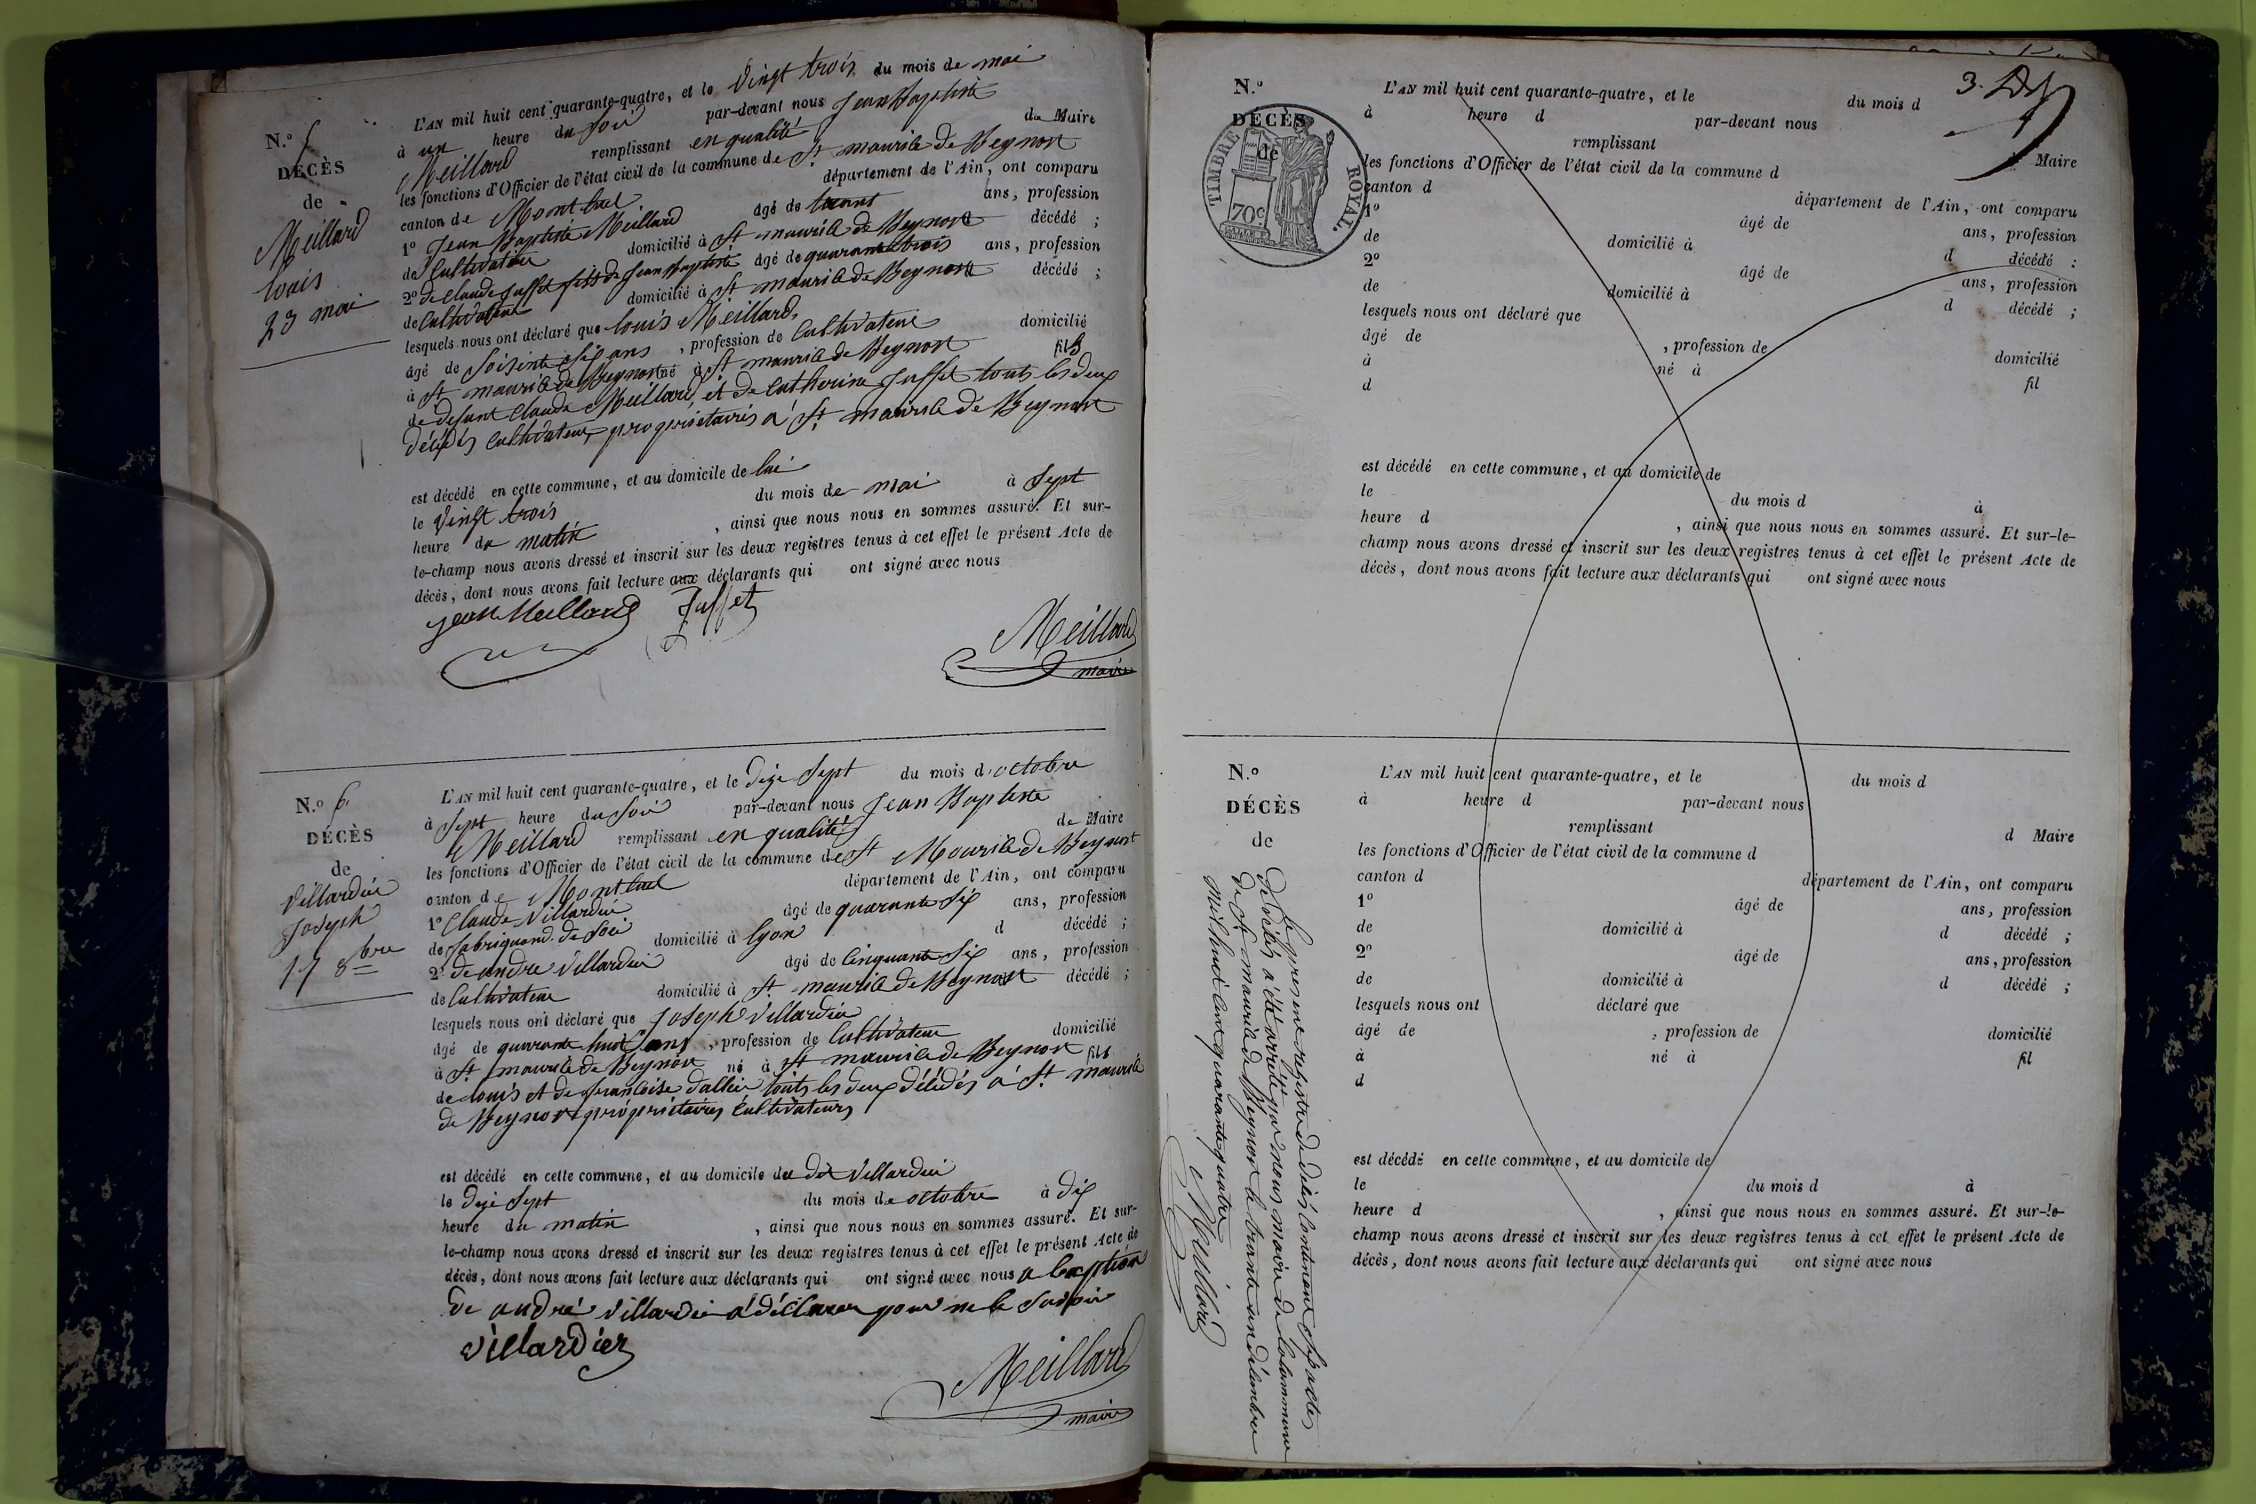 N.o 5
DÉCÈS
de
Meillard
louis
23 mai
L'AN mil huit cent quarante-quatre, et le Vingt trois du mois de mai
à un heure du Soir par-devant nous Jean Baptiste
Meillard remplissant en qualité de Maire
les fonctions d'Officier de l'état civil de la commune de St maurice de Beynost
canton de Montluel département de l'Ain, ont comparu
1o Jean Baptiste Meillard âgé de ans, profession
de Cultivateur domicilié à St maurice de Beynost décédé ;
2o de Claude Juffet fils de Jean Baptiste âgé de quarante trois ans, profession
de Cultivateur domicilié à St maurice de Beynost décédé ;
lesquels nous ont déclaré que louis Meillard
âgé de Soisante Six ans , profession de Cultivateur domicilié
à St maurice de Beynost né à St maurice de Beynost fils
de defunt Claude Meillard et de Catherine Juffet touts les deux
décédés Cultivateur proprietaires a St maurice de Beynost
est décédé en cette commune, et au domicile de lui
le Vingt trois du mois de mai à Sept
heure du matin , ainsi que nous nous en sommes assuré. Et sur-
le-champ nous avons dressé et inscrit sur les deux registres tenus à cet effet le présent Acte de
décès, dont nous avons fait lecture aux déclarants qui ont signé avec nous
jean Meillard Juffet
Meillard
maire
N.o 6
DÉCÈS
de
Villardier
Joseph
17 8bre
L'AN mil huit cent quarante-quatre, et le Dixe Sept du mois d'octobre
à Sept heure du Soir par-devant nous Jean Baptiste
Meillard remplissant en qualité de Maire
les fonctions d'Officier de l'état civil de la commune de St Maurice de Beynost
canton de Montluel département de l'Ain, ont comparu
1o Claude Villardier âgé de quarante Six ans, profession
de fabriquand de Soie domicilié à lyon d décédé ;
2o de andre Villardier âgé de Cinquante Six ans, profession
de Cultivateur domicilié à St maurice de Beynost décédé ;
lesquels nous ont déclaré que Joseph Villardier
âgé de quarante huit ans , profession de Cultivateur domicilié
à St maurice de Beynost né à St maurice de Beynost fils
de louis et de francoise touts les deux décédés a St maurice
de Beynost proprietaires Cultivateurs
est décédé en cette commune, et au domicile du dit Villardier
le Dixe Sept du mois de octobre à Dix
heure du matin , ainsi que nous nous en sommes assuré. Et sur-
le-champ nous avons dressé et inscrit sur les deux registres tenus à cet effet le présent Acte de
décès, dont nous avons fait lecture aux déclarants qui ont signé avec nous a lexseption
de andré Villardier a déclarer pour ne le Savoir
Villardier
Meillard
maire
3.
N.o
DÉCÈS
de
TIMBRE ROYAL.
70c
L'AN mil huit cent quarante-quatre, et le du mois d
à heure d par-devant nous
remplissant Maire
les fonctions d'Officier de l'état civil de la commune d
canton d département de l'Ain, ont comparu
1o âgé de ans, profession
de domicilié à d décédé ;
2o âgé de ans, profession
de domicilié à d décédé ;
lesquels nous ont déclaré que
âgé de , profession de domicilié
à né à fil
d
est décédé en cette commune, et au domicile de
le du mois d à
heure d , ainsi que nous nous en sommes assuré. Et sur-le-
champ nous avons dressé et inscrit sur les deux registres tenus à cet effet le présent Acte de
décès, dont nous avons fait lecture aux déclarants qui ont signé avec nous
N.o
DÉCÈS
de
L'AN mil huit cent quarante-quatre, et le du mois d
à heure d par-devant nous
remplissant d Maire
les fonctions d'Officier de l'état civil de la commune d
canton d département de l'Ain, ont comparu
1o âgé de ans, profession
de domicilié à d décédé ;
2o âgé de ans, profession
de domicilié à d décédé ;
lesquels nous ont déclaré que
âgé de , profession de domicilié
à né à fil
d
est décédé en cette commune, et au domicile de
le du mois d à
heure d , ainsi que nous nous en sommes assuré. Et sur-le-
champ nous avons dressé et inscrit sur les deux registres tenus à cet effet le présent Acte de
décès, dont nous avons fait lecture aux déclarants qui ont signé avec nous
le present registre de décés Contenant Six actes
de décés a été arrêté par nous maire de la Commune
de St maurice de Beynost le trente un décembre
mil huit Cent quarante quatre
Meillard